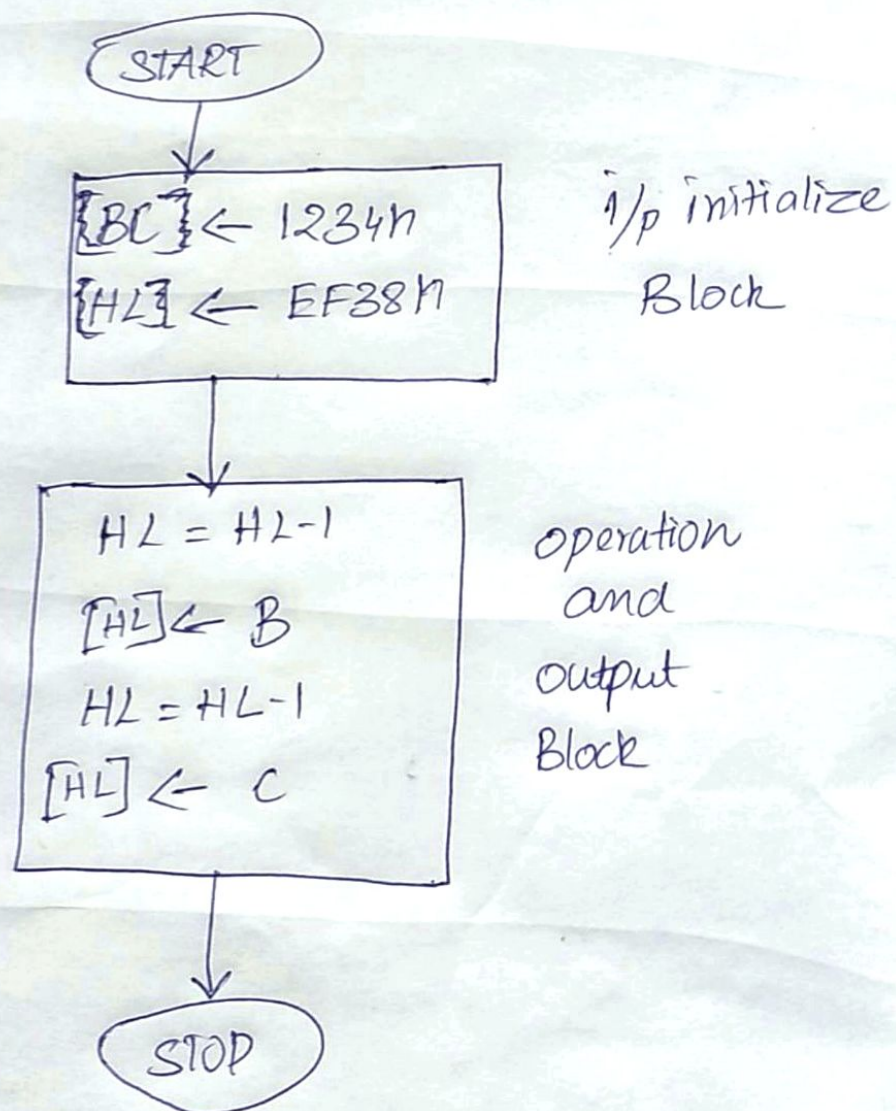 START
[BC] ← 1234H
[HL] ← EF38H
i/p initialize
Block
HL = HL-1
[HL] ← B
HL = HL-1
[HL] ← C
operation
and
output
Block
STOP